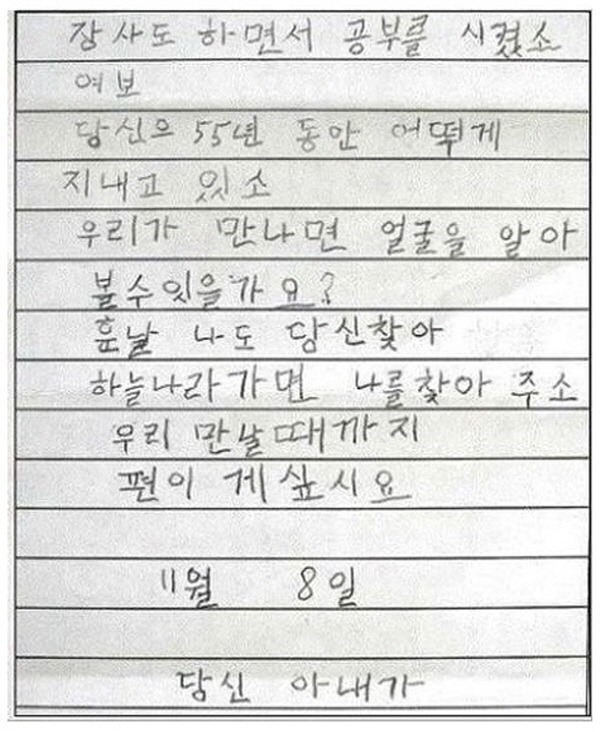 장사도 하면서 공부를 시켰소
여보
당신으 55년 동안 어떻게
지내고 있소
우리가 만나면 얼굴을 알아
볼수있을가요?
훈날 나도 당신찾아
하늘나라가면 나를찾아 주소
우리 만날때까지
편이 게싶시요
11월 8일
당신 아내가